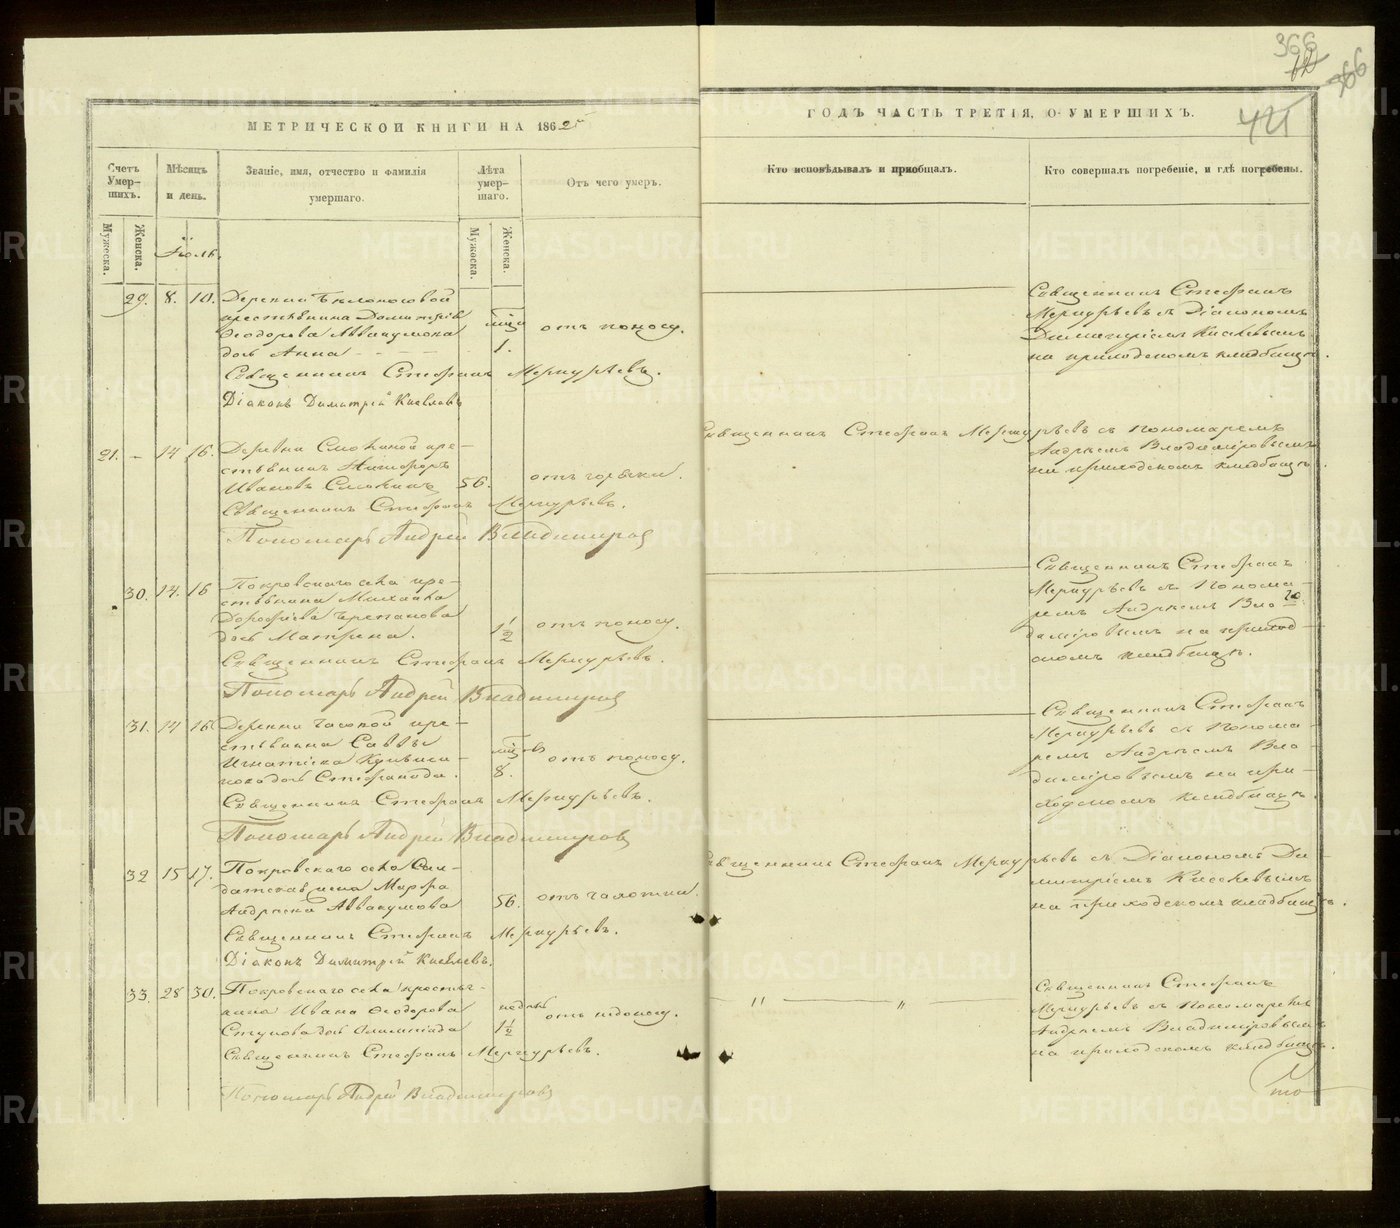 366
366
421
МЕТРИЧЕСКОЙ КНИГИ НА 1862
ГОДЪ ЧАСТЬ ТРЕТІЯ, О УМЕРШИХЪ.
Счетъ Умер-шихъ.
Мѣсяцъ и день.
Званіе, имя, отчество и фамилія умершаго.
Лѣта умер-шаго.
Отъ чего умеръ.
Кто исповѣдывалъ и приобщалъ.
Кто совершалъ погребеніе, и гдѣ погребены.
Мужеска.
Женска.
Мужеска.
Женска.
Іюль.
29. 8. 10. Деревни Бѣлоносовой
крестьянина Димитрія
Ѳеодорова Аввакумова
дочь Анна
1.
отъ поносу.
Священникъ Стефанъ Меркурьевъ.
Діаконъ Димитрій Киселевъ
Священникъ Стефанъ
Меркурьевъ съ Діакономъ
Димитріемъ Киселевымъ
на приходскомъ кладбищѣ.
21. – 14 16. Деревни Смокиной кре-
стьянинъ Никифоръ
Ивановъ Смокинъ 56.
отъ горячки.
Священникъ Стефанъ Меркурьевъ.
Пономарь Андрей Владимиров
Священникъ Стефанъ Меркурьевъ съ Пономаремъ
Андреемъ Владиміровымъ
на приходскомъ кладбищѣ
30. 14. 16 Покровскаго села кре-
стьянина Михаила
Дорофѣева Черепанова
дочь Матрена. 1/2
отъ поносу.
Священникъ Стефанъ Меркурьевъ.
Пономарь Андрей Владимиров
Священникъ Стефанъ
Меркурьевъ съ Понома-
ремъ Андреемъ Вла
диміровымъ на приход-
скомъ кладбищѣ.
31. 14 16. Деревни Часовой кре-
стьянина Саввы
Игнатіева
дочь Стефанида.
8.
отъ поносу.
Священникъ Стефанъ Меркурьевъ.
Пономарь Андрей Владимиров
Священникъ Стефанъ
Меркурьевъ съ Понома-
ремъ Андреемъ Вла-
диміровымъ на при-
ходскомъ кладбищѣ.
32 15 17. Покровскаго села Сол-
датская жена Марфа
Андреева Аввакумова 56.
отъ чахотки.
Священникъ Стефанъ Меркурьевъ.
Діаконъ Димитрій Киселевъ.
Священникъ Стефанъ Меркурьевъ съ Діакономъ Ди-
митріемъ Киселевымъ
на приходскомъ кладбищѣ.
33. 28 30. Покровскаго села крестья-
нина Ивана Ѳеодорова
Ступова дочь Олимпіада
недѣль
1 1/2
отъ поносу.
Священникъ Стефанъ Меркурьевъ.
Пономарь Андрей Владимиров
Священникъ Стефанъ
Меркурьевъ съ Пономаремъ
Андреемъ Владиміровымъ
на приходскомъ кладбищѣ.
METRIKI.GASO-URAL.RU